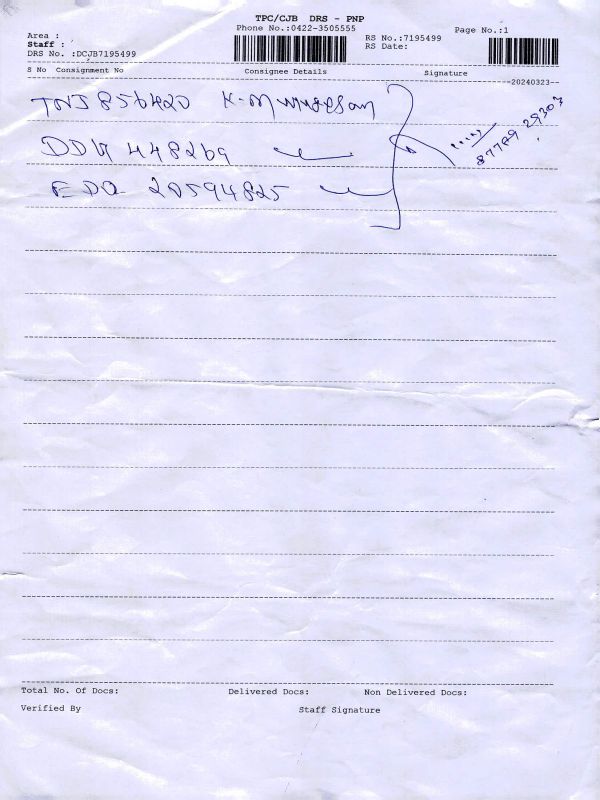 TPC/CJB DRS - PNP
Phone No.:0422-3505555
Page No.:1
Area :
RS No.:7195499
Staff :
RS Date:
DRS No. :DCJB7195499
S No Consignment No Consignee Details Signature
--20240323--
TNJ856420 K-Murugesan
DDU 448269
EDQ 20594825
Total No. Of Docs: Delivered Docs: Non Delivered Docs:
Verified By Staff Signature